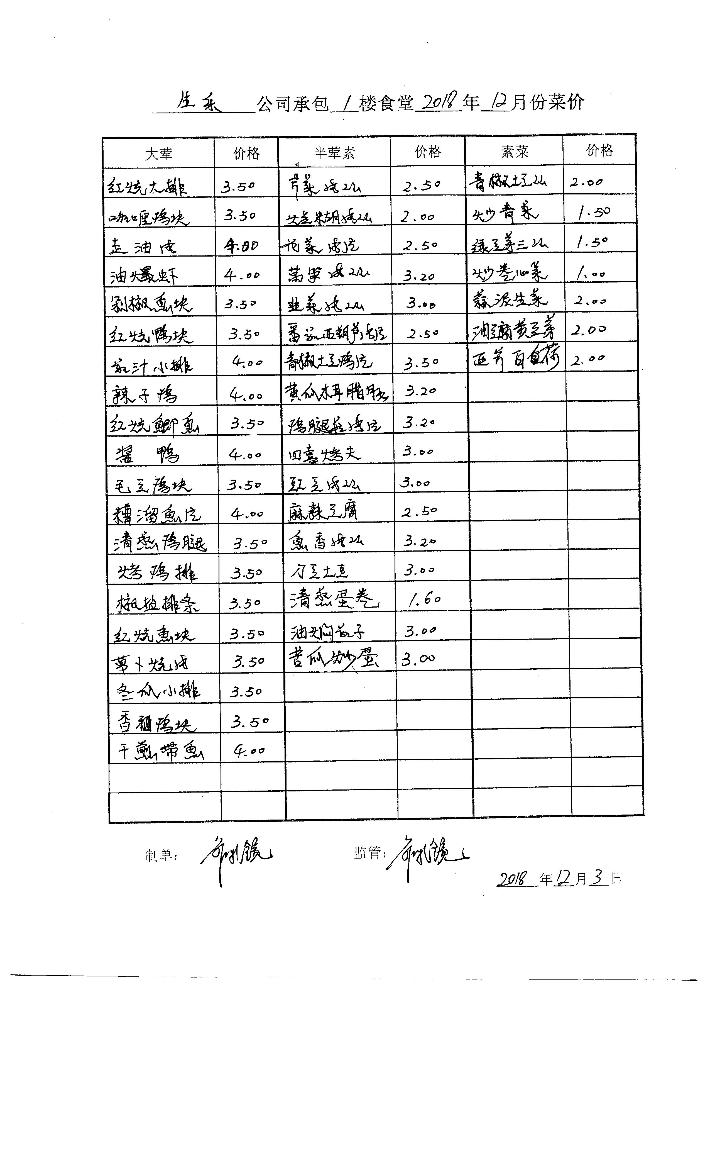 公司承包 1 楼食堂 2018 年 12 月份菜价
大荤 价格 半荤素 价格 素菜 价格
红烧大排 3.50 芹菜肉丝 2.50 青椒土豆丝 2.00
咖喱鸡块 3.50 2.00 炒青菜 1.50
走油肉 4.00 肉片 2.50 绿豆芽三丝 1.50
油爆虾 4.00 莴笋肉丝 3.20 炒卷心菜 1.00
剁椒鱼块 3.50 韭菜肉丝 3.00 蒜泥生菜 2.00
红烧鸭块 3.50 番茄西葫芦肉片 2.50 油豆腐黄豆芽 2.00
茄汁小排 4.00 青椒土豆鸡片 3.50 西芹 2.00
辣子鸡 4.00 黄瓜木耳腊肠 3.20
红烧鲫鱼 3.50 鸡腿菇肉片 3.20
酱鸭 4.00 四喜烤夫 3.00
毛豆鸡块 3.50 豇豆肉丝 3.00
糟溜鱼片 4.00 麻辣豆腐 2.50
清蒸鸡腿 3.50 鱼香肉丝 3.20
烤鸡排 3.50 刀豆土豆 3.00
椒盐排条 3.50 清蒸蛋卷 1.60
红烧鱼块 3.50 油焖茄子 3.00
萝卜烧肉 3.50 苦瓜炒蛋 3.00
冬瓜小排 3.50
香酥鸭块 3.50
干煎带鱼 4.00
制单： 监管：
2018 年 12 月 3 日